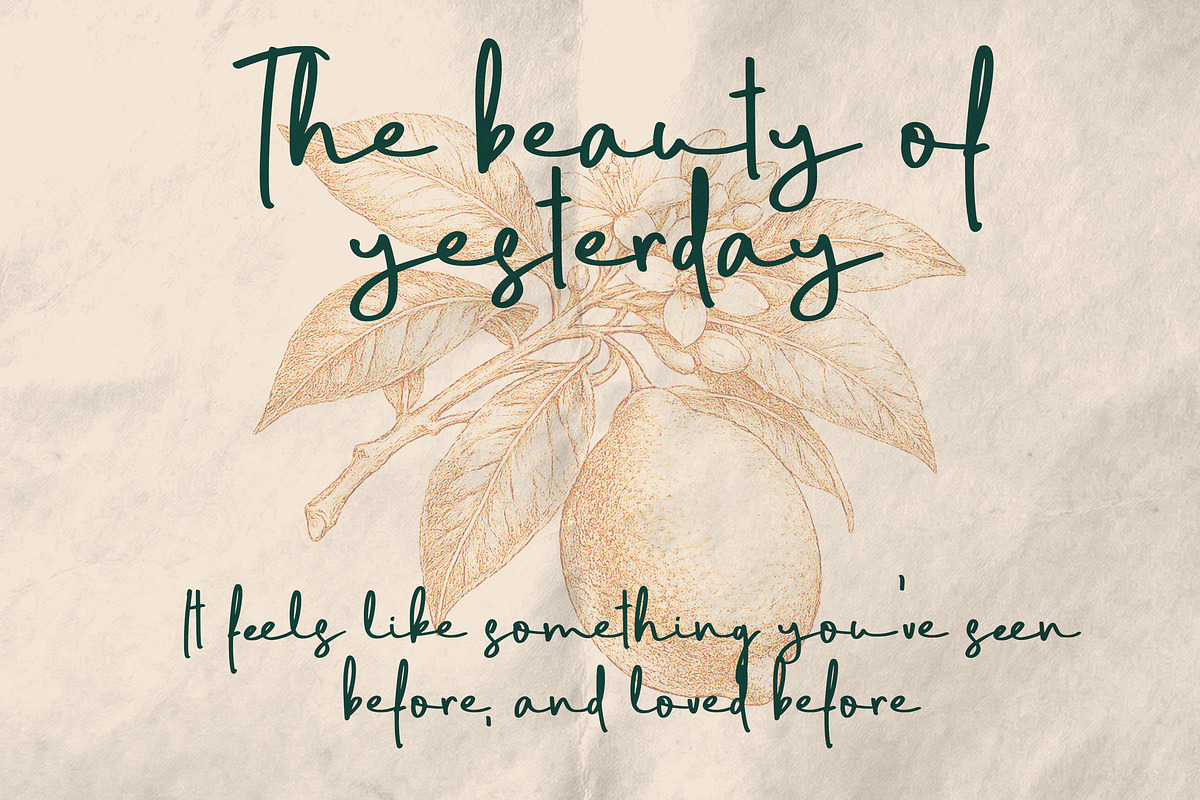 The beauty of
yesterday
It feels like something you've seen
before, and loved before